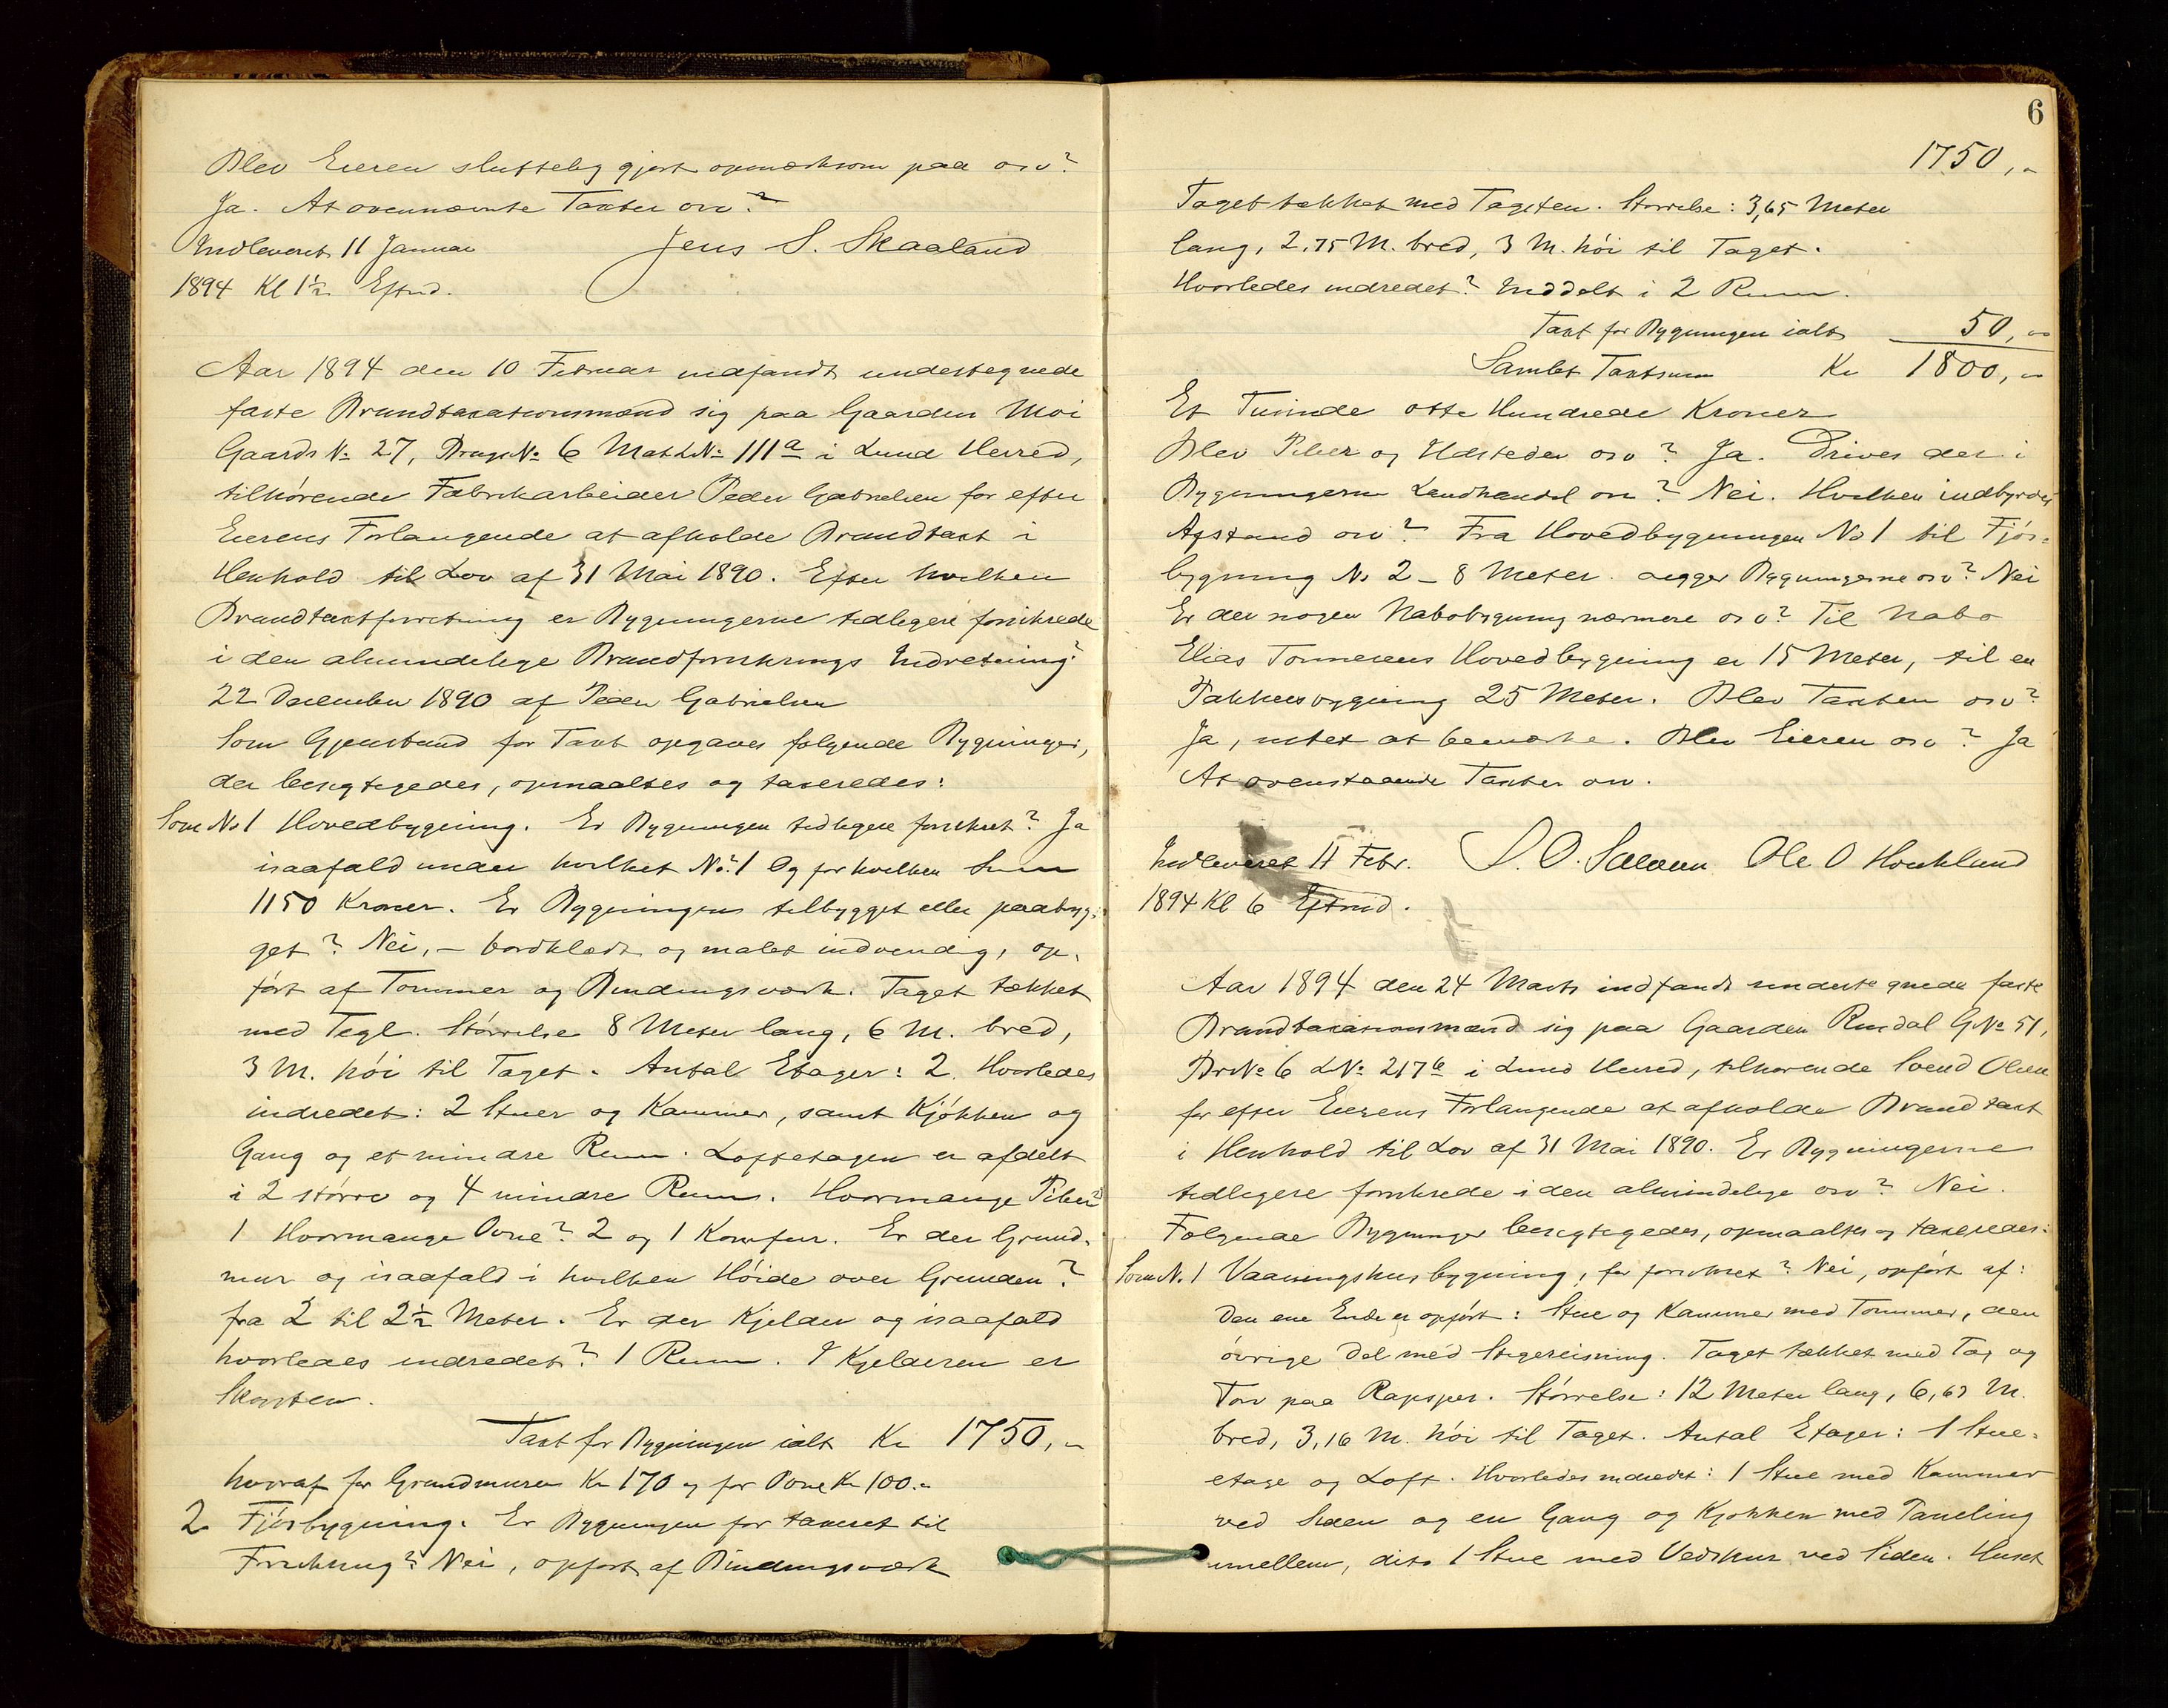 Blev Eieren sluttelig gjort opmærksom paa osv?
Ja. At ovennævnte Taxter osv.?
Indleveret 11 Januar Jens S. Skaaland
1894 Kl 1½ Eftmd.
Aar 1894 den 10 Februar indfandt undertegnede
faste Brandtaxationsmænd sig paa Gaarden Moi
Gaards No 27, Brugs No 6 Mat L No 111a i Lund Herred,
tilhørende Fabrikarbeider Peder Gabrielsen for efter
Eierens Forlangende at afholde Brandtaxt i
Henhold til Lov af 31 Mai 1890. Efter hvilken
Brandtaxtforretning er Bygningerne tidligere forsikrede
i den almindelige Brandforsikrings Indretning?
22 December 1890 af Peder Gabrielsen
Som Gjenstand for Taxt opgaves følgende Bygninger,
der besigtigedes, opmaaltes og taxeredes:
Som No 1 Hovedbygning. Er Bygningen tidligere forsikret? Ja
isaafald under hvilket No? 1 Og for hvilken Sum
1150 Kroner. Er Bygningens tilbygget eller paabyg-
get? Nei, – bordklædt og malet indvendig, op-
ført af Tømmer og Bindingsværk. Taget tækket
med Tegl. Størrelse 8 Meter lang, 6 M. bred,
3 M. høi til Taget. Antal Etager: 2. Hvorledes
indredet: 2 Stuer og Kammer, samt Kjøkken og
Gang og et mindre Rum. Loftetagen er afdelt
i 2 større og 4 mindre Rum. Hvormange Piber?
1 Hvormange Ovne? 2 og 1 Komfur. Er der Grund-
mur og isaafald i hvilken Høide over Grunden?
fra 2 til 2½ Meter. Er der Kjelder og isaafald
hvorledes indredet? 1 Rum. I Kjelderen er
Skorsten.
Taxt for Bygningen ialt Kr 1750,-
hvoraf for Grundmuren Kr 170 og for Ovne Kr 100.-
2 Fjøsbygning. Er Bygningen før taxeret til
Forsikring? Nei, opført af Bindingsværk
6
1750,-
Taget tækket med Tagsten. Størrelse: 3,65 Meter
lang, 2,75 M. bred, 3 M. høi til Taget.
Hvorledes indredet? Inddelt i 2 Rum.
Taxt for Bygningen ialt 50,-
Samlet Taxtsum Kr 1800,-
Et Tusinde otte Hundrede Kroner
Blev Piber og Ildsteder osv? Ja. Drives der i
Bygningerne Landhandel osv? Nei. Hvilken indbyrdes
Afstand osv? Fra Hovedbygningen No 1 til Fjøs-
bygning No 2 – 8 Meter. Ligger Bygningerne osv? Nei
Er der nogen Nabobygning nærmere osv? Til Nabo
Elias Tønnesens Hovedbygning er 15 Meter, til en
Pakhusbygning 25 Meter. Blev Taxten osv?
Ja, intet at bemærke. Blev Eieren osv? Ja
At ovenstaaende Taxter osv.
Indleveret 11 Febr. Ole O
1894 Kl 6 Eftmd.
Aar 1894 den 24 Marts indfandt undertegnede faste
Brandtaxationsmænd sig paa Gaarden G No 51,
Br No 6 L No 217b i Lund Herred, tilhørende Svend Olsen
for efter Eierens Forlangende at afholde Brandtaxt
i Henhold til Lov af 31 Mai 1890. Er Bygningerne
tidligere forsikrede i den almindelige osv? Nei.
Følgende Bygninger besigtigedes, opmaaltes og taxeredes:
Som No. 1 Vaaningshusbygning, før forsikret? Nei, opført af:
Den ene Ende er opført: Stue og Kammer med Tømmer, den
øvrige Del med Stegereisning. Taget tækket med og
Torv paa. Størrelse: 12 Meter lang, 6,63 M.
bred, 3,16 M. høi til Taget. Antal Etager: 1 Stue-
etage og Loft. Hvorledes indredet: 1 Stue med Kammer
ved Siden og en Gang og Kjøkken med Paneling
imellem, dito 1 Stue med Vedskur ved Siden. Huset